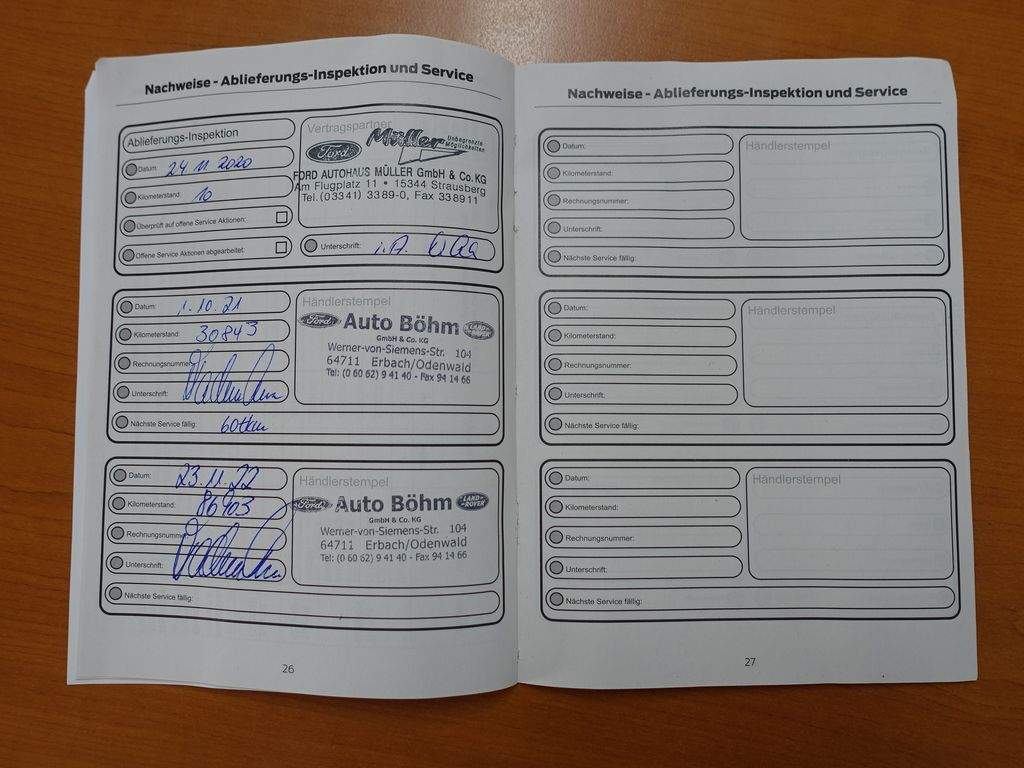 Nachweise - Ablieferungs-Inspektion und Service
Ablieferungs-Inspektion
Datum: 24 11 2020
Kilometerstand: 10
Überprüft auf offene Service Aktionen:
Offene Service Aktionen abgearbeitet:
Vertragspartner
Müller
Unbegrenzte
Möglichkeiten
Ford
FORD AUTOHAUS MÜLLER GmbH & Co. KG
Am Flugplatz 11 • 15344 Strausberg
Tel. (03341) 3389-0, Fax 338911
Unterschrift: i.A.
Datum: 1.10.21
Kilometerstand: 30843
Rechnungsnummer:
Unterschrift:
Nächste Service fällig: 60tkm
Händlerstempel
Ford Auto Böhm LAND-ROVER
GmbH & Co. KG
Werner-von-Siemens-Str. 104
64711 Erbach/Odenwald
Tel: (0 60 62) 9 41 40 - Fax 94 14 66
Datum: 23.11.22
Kilometerstand: 86903
Rechnungsnummer
Unterschrift:
Nächste Service fällig:
Händlerstempel
Ford Auto Böhm LAND-ROVER
GmbH & Co. KG
Werner-von-Siemens-Str. 104
64711 Erbach/Odenwald
Tel: (0 60 62) 9 41 40 - Fax 94 14 66
26
Nachweise - Ablieferungs-Inspektion und Service
Datum:
Kilometerstand:
Rechnungsnummer:
Unterschrift:
Nächste Service fällig:
Händlerstempel
Datum:
Kilometerstand:
Rechnungsnummer:
Unterschrift:
Nächste Service fällig:
Händlerstempel
Datum:
Kilometerstand:
Rechnungsnummer:
Unterschrift:
Nächste Service fällig:
Händlerstempel
27